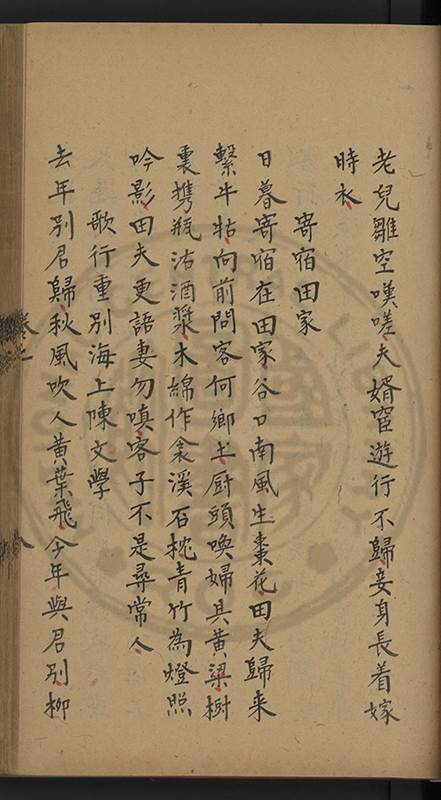 老兒雛空嘆嗟夫婿宦遊行不歸妾身長着嫁
時衣
寄宿田家
日暮寄宿在田家谷口南風生棗花田夫歸来
繫牛牯向前問客何鄉土厨頭喚婦具黄粱樹
裏携瓶沽酒漿木綿作衾溪石枕青竹為燈照
吟影田夫更語妻勿嗔客子不是尋常人
歌行重别海上陳文學
去年别君歸秋風吹人黄葉飛今年與君别柳